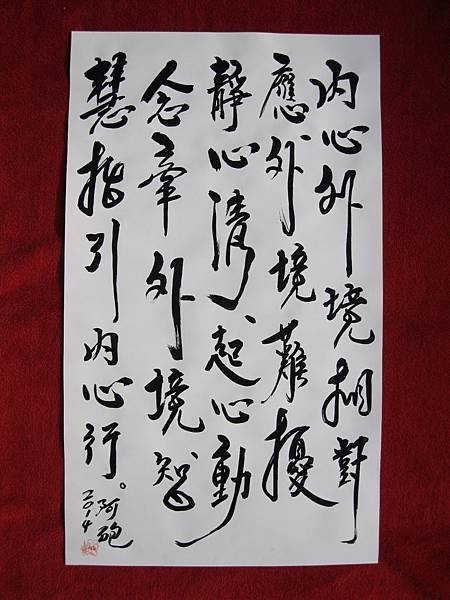 内心外境相對
應外境難擾
靜心清、起心動
念牽外境智
慧指引内心行。
阿砲
2014